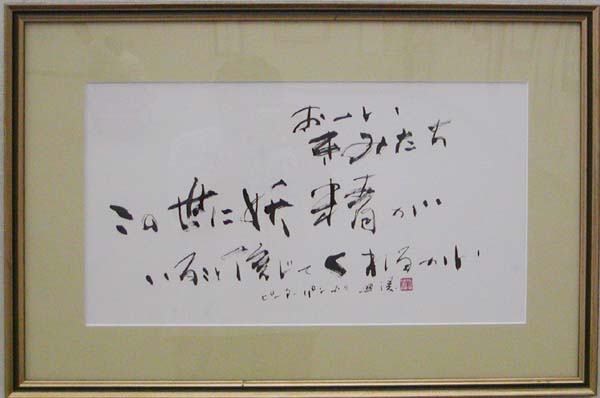 おーい
きみたち
この世に妖精が
いること信じてくれるかい
ピーターパンより